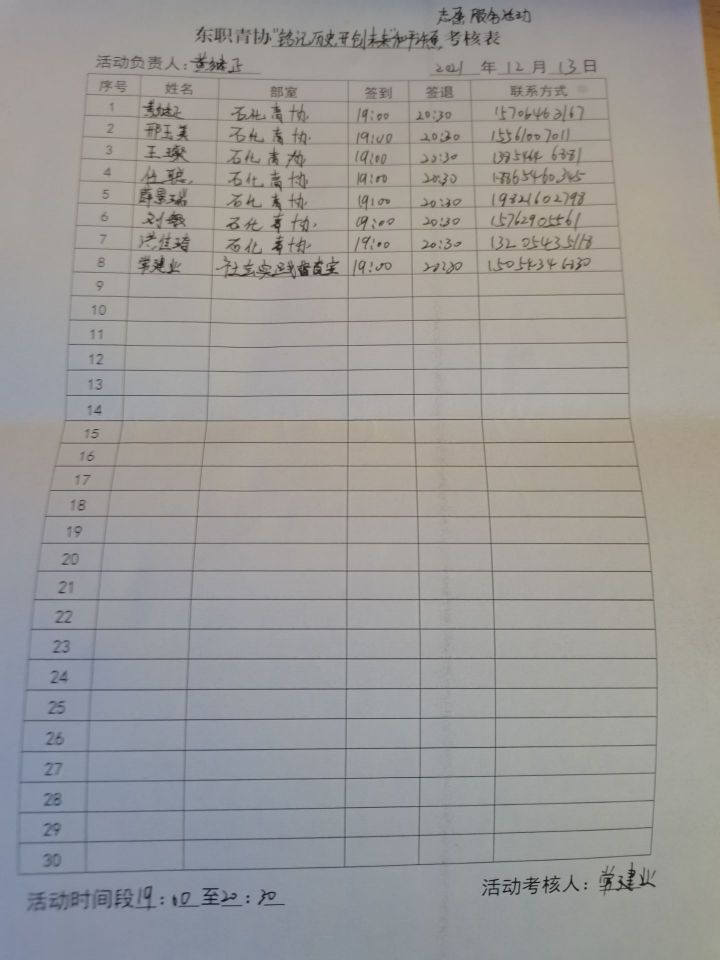 志愿服务活动
东职青协"铭记历史开创未来"和平 考核表
活动负责人：黄继正 2021 年 12 月 13 日
序号 姓名 部室 签到 签退 联系方式
1 黄继正 石化青协 19:00 20:30 15706463167
2 邢玉美 石化青协 19:00 20:30 15561007011
3 王璨 石化青协 19:00 20:30
4 任聪 石化青协 19:00 20:30 18865460345
5 薛景瑞 石化青协 19:00 20:30 19821602798
6 刘 石化青协 19:00 20:30 15762905561
7 洪佳琦 石化青协 19:00 20:30 13205435118
8 常建业 社会实践 19:00 20:30 15054346330
9
10
11
12
13
14
15
16
17
18
19
20
21
22
23
24
25
26
27
28
29
30
活动时间段19：00至20：30 活动考核人：常建业